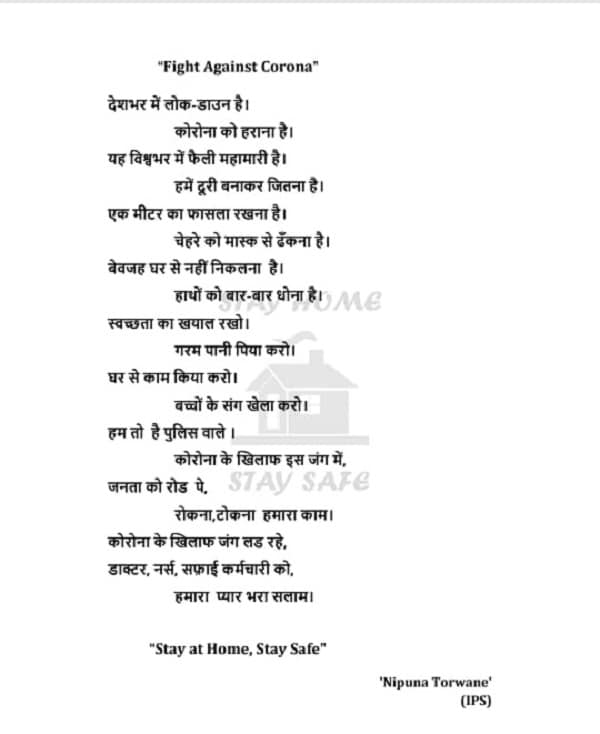 "Fight Against Corona"
देशभर में लोक-डाउन है।
कोरोना को हराना है।
यह विश्वभर में फैली महामारी है।
हमें दूरी बनाकर जितना है।
एक मीटर का फासला रखना है।
चेहरे को मास्क से ढँकना है।
बेवजह घर से नहीं निकलना है।
हाथों को बार-बार धोना है।
STAY HOME
स्वच्छता का खयाल रखो।
गरम पानी पिया करो।
घर से काम किया करो।
बच्चों के संग खेला करो।
हम तो है पुलिस वाले ।
कोरोना के खिलाफ इस जंग में,
जनता को रोड पे,
STAY SAFE
रोकना,टोकना हमारा काम।
कोरोना के खिलाफ जंग लड रहे,
डाक्टर, नर्स, सफ़ाई कर्मचारी को,
हमारा प्यार भरा सलाम।
"Stay at Home, Stay Safe"
'Nipuna Torwane'
(IPS)